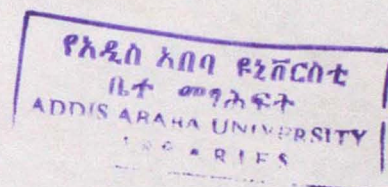 የአዲስ አበባ ዩኒቨርስቲ
ቤተ መፃሕፍት
ADDIS ABABA UNIVERSITY
LIBRARIES